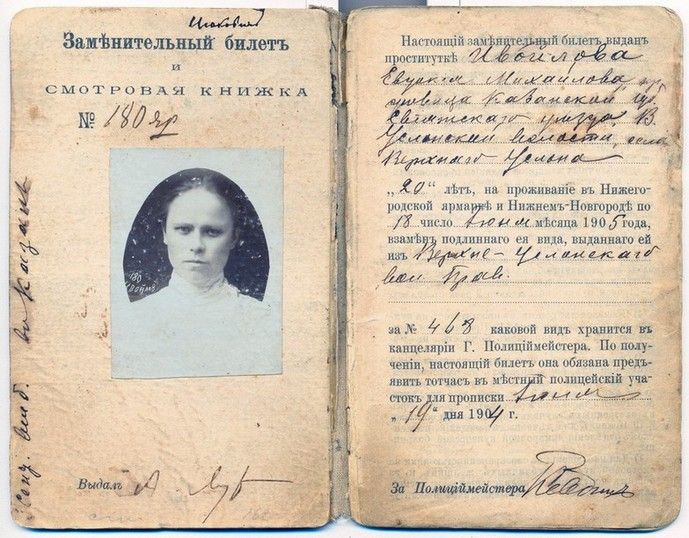 Замѣнительный билетъ
и
СМОТРОВАЯ КНИЖКА
№ 180 яр
180
Выдалъ
Настоящій замѣнительный билетъ выданъ
проституткѣ Ивойлова
Евдокія Михайлова,
Казанской губ.
Свіяжскаго уѣзда, В.
Услонской волости, села
Верхняго Услона
„20“ лѣтъ, на проживаніе въ Нижего-
родской ярмаркѣ и Нижнемъ-Новгородѣ по
18 число іюня мѣсяца 1905 года,
взамѣнъ подлиннаго ея вида, выданнаго ей
изъ Верхне-Услонскаго
вол прав.
за № 468 каковой видъ хранится въ
канцеляріи Г. Полиціймейстера. По полу-
ченіи, настоящій билетъ она обязана предъ-
явить тотчасъ въ мѣстный полицейскій уча-
стокъ для прописки іюня
„19“ дня 1904 г.
За Полиціймейстера